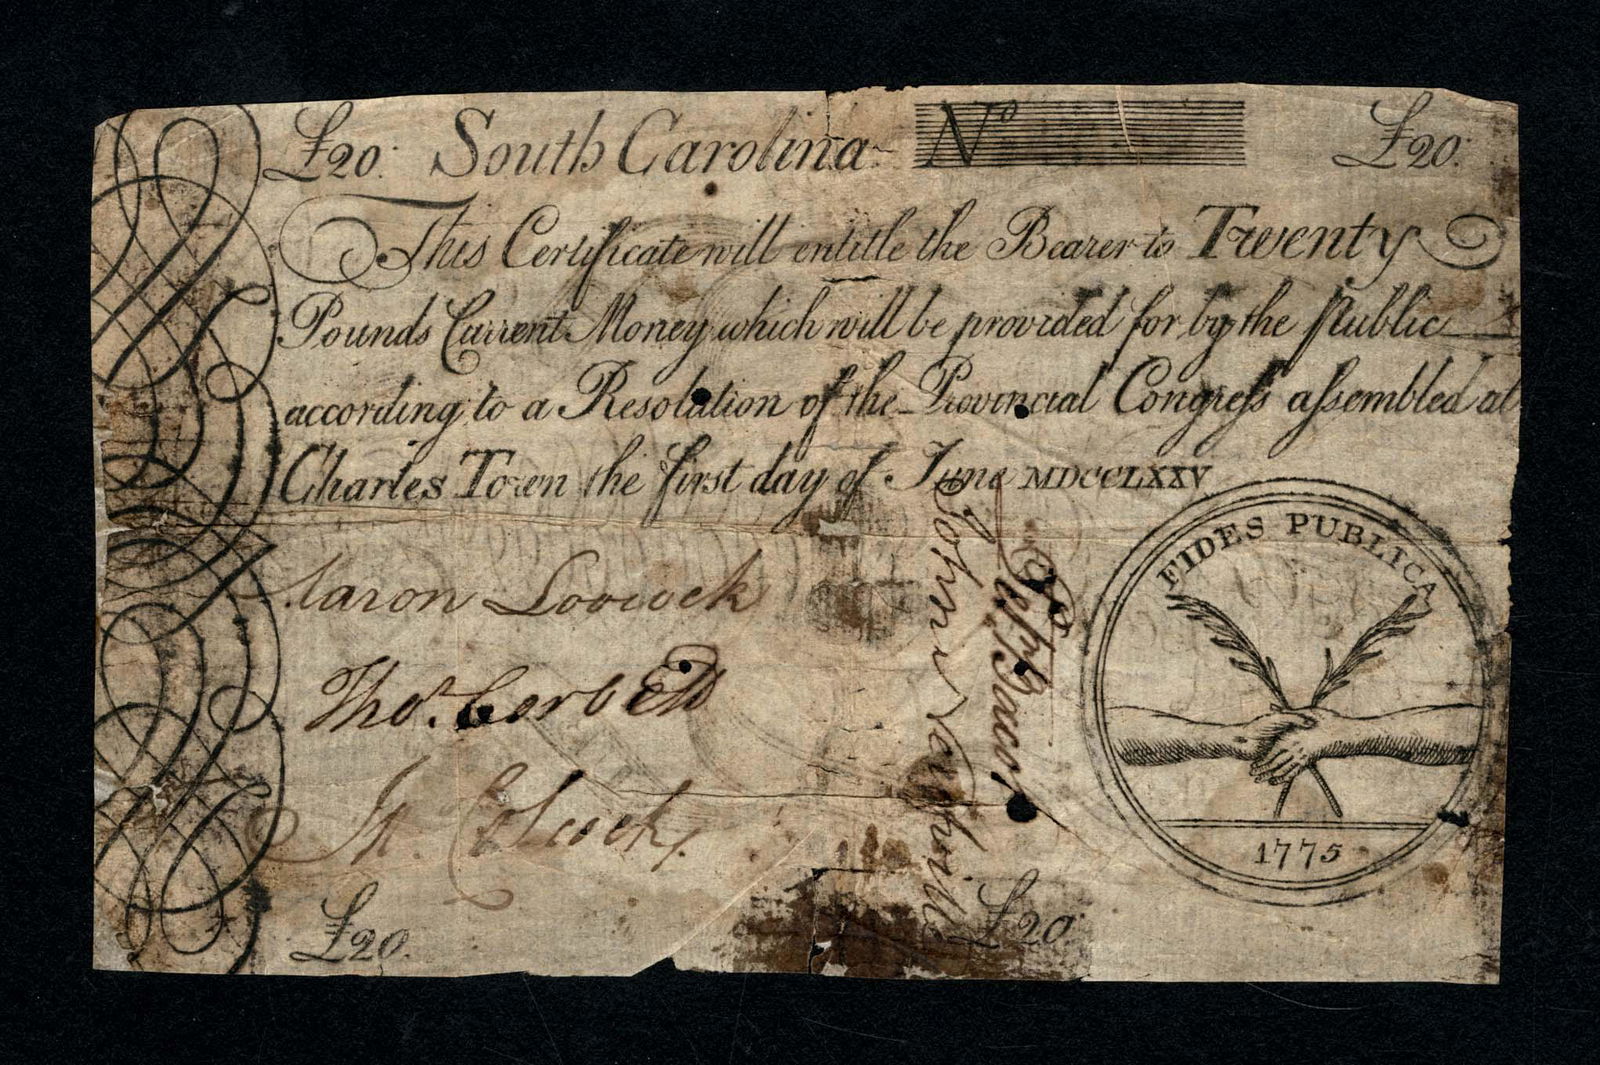 £20: South Carolina Nº £20:
This Certificate will entitle the Bearer to Twenty
Pounds Current Money which will be provided for by the Public
according to a Resolution of the Provincial Congreſs aſsembled at
Charles Town the first day of June MDCCLXXV
FIDES PUBLICA
Aaron Loocock
Thoˢ. Corbett
Jn. Colcock,
Petr. Bacot
John Neufville
1775
£20. £20